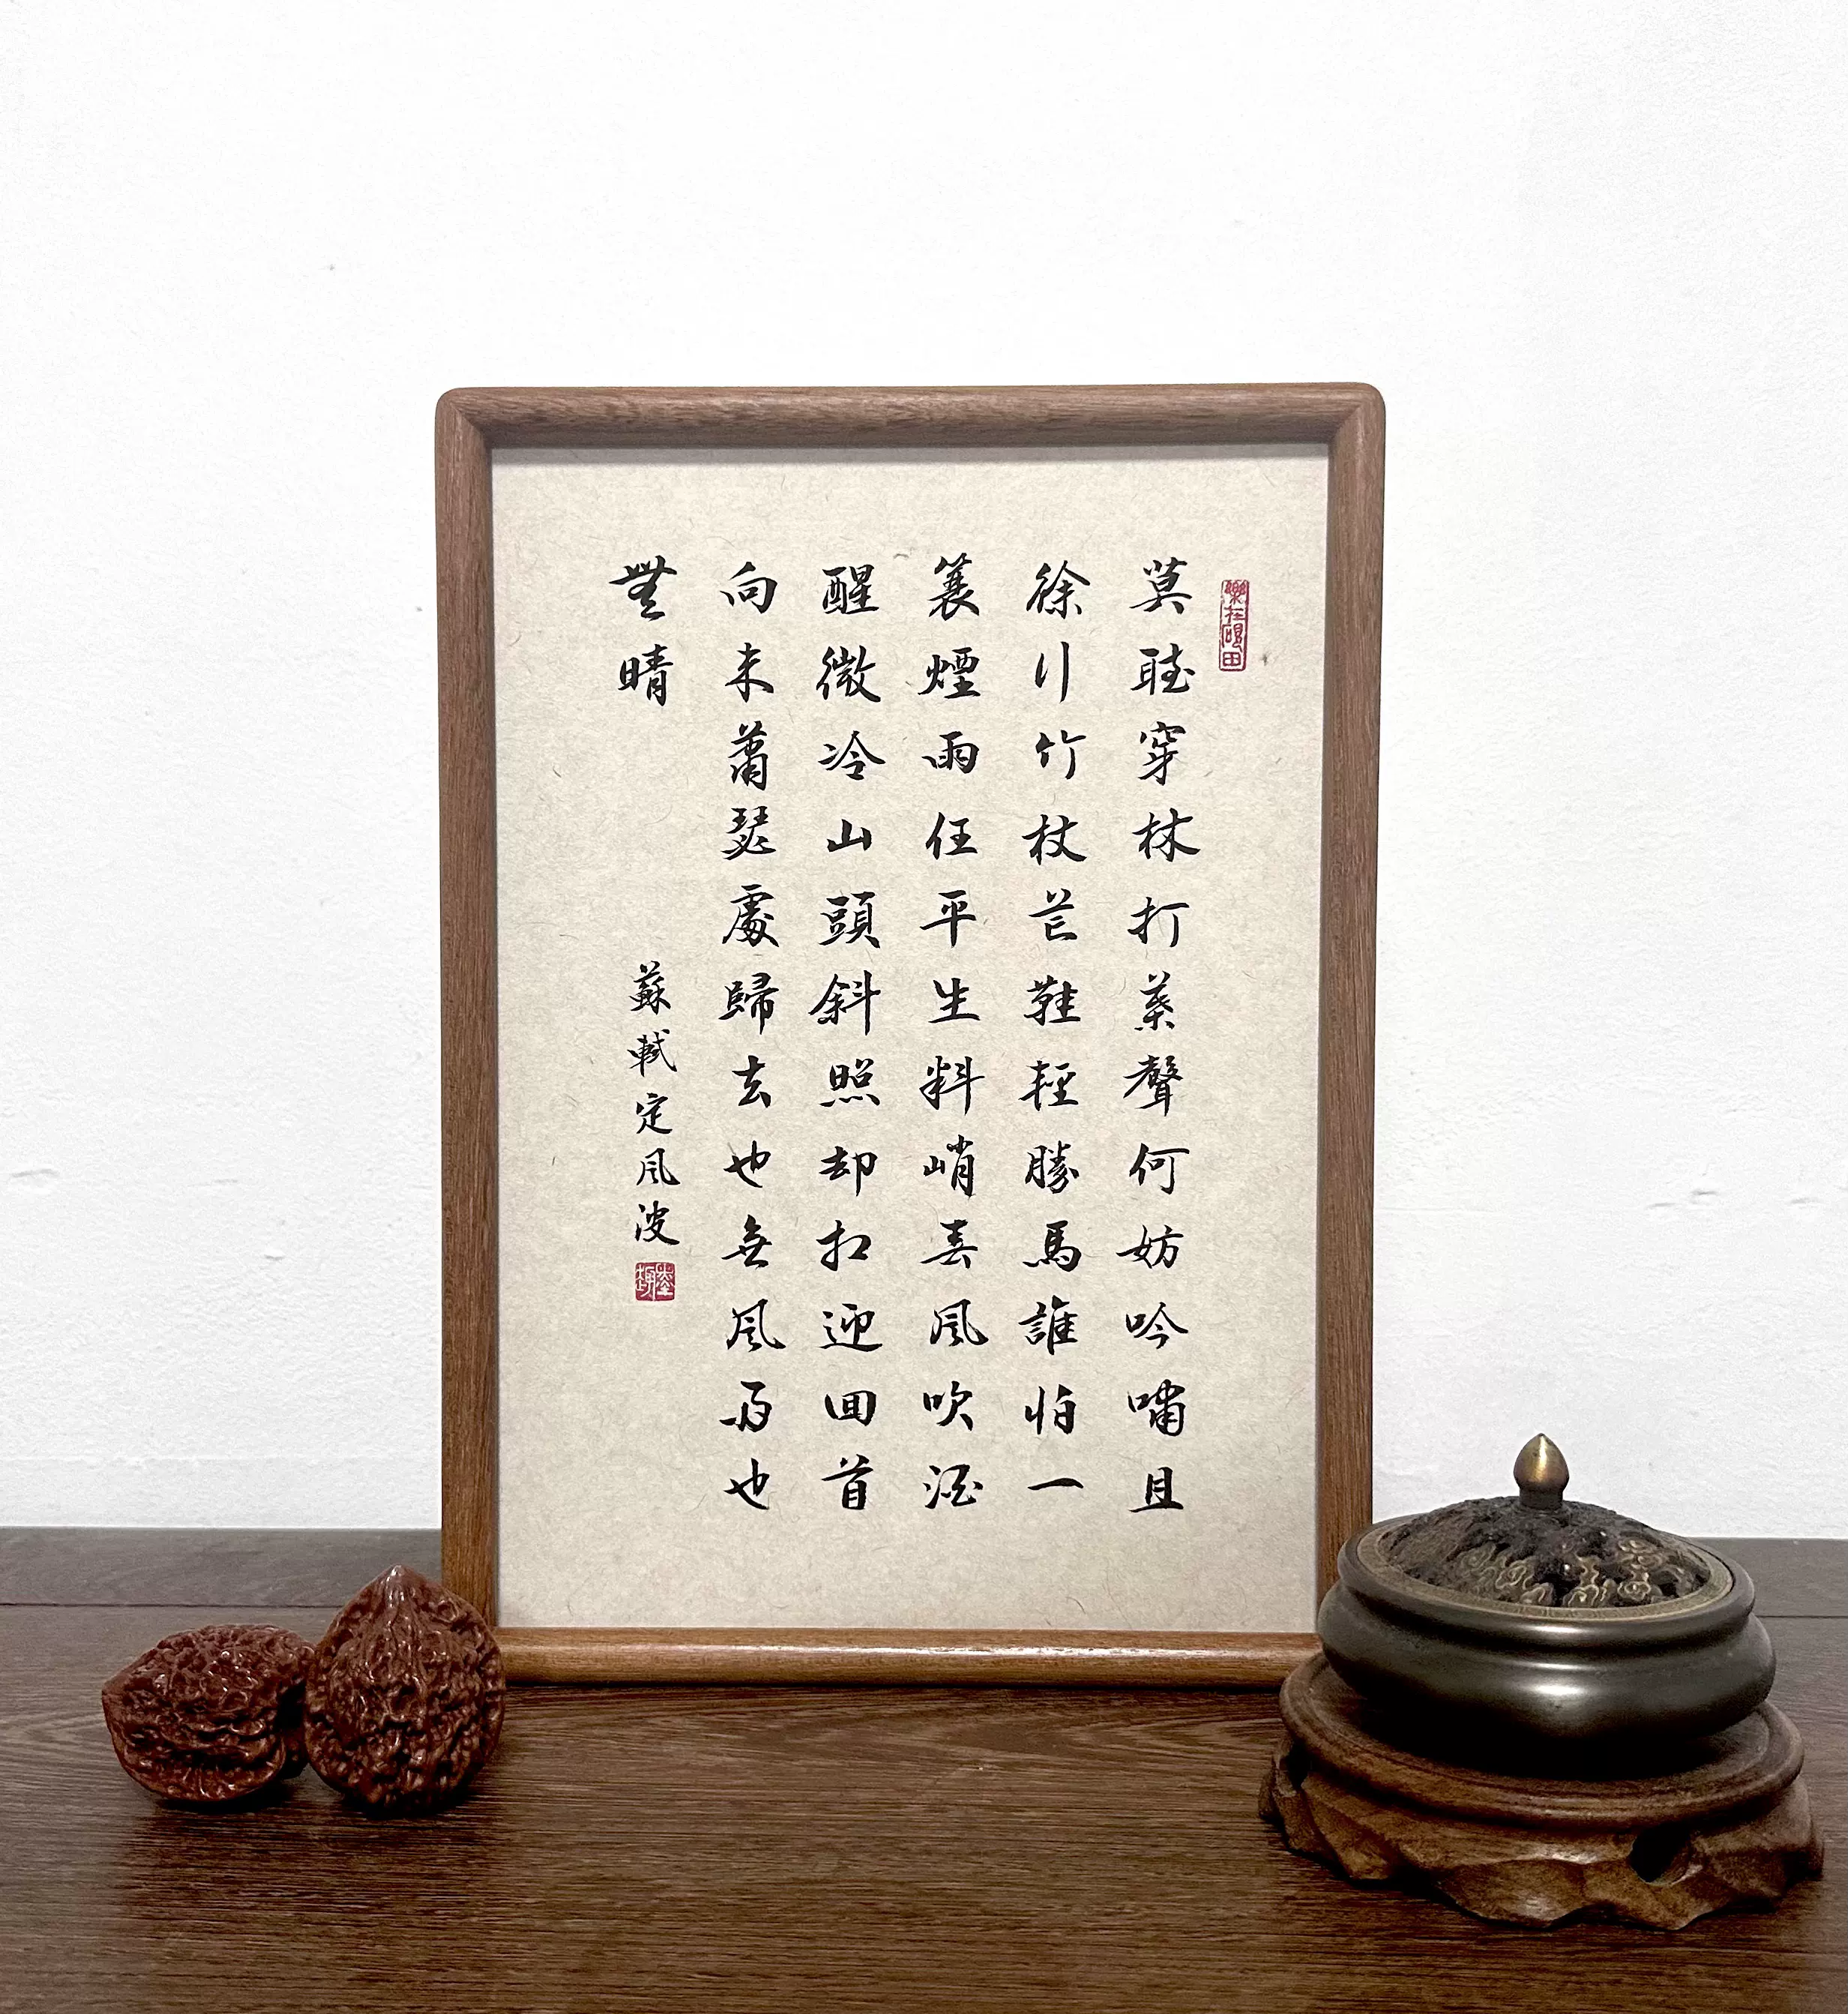 樂在硯田
莫聽穿林打葉聲何妨吟嘯且
徐行竹杖芒鞋輕勝馬誰怕一
簑煙雨任平生料峭春風吹酒
醒微冷山頭斜照却相迎回首
向来蕭瑟處歸去也無風雨也
無晴
蘇軾定風波